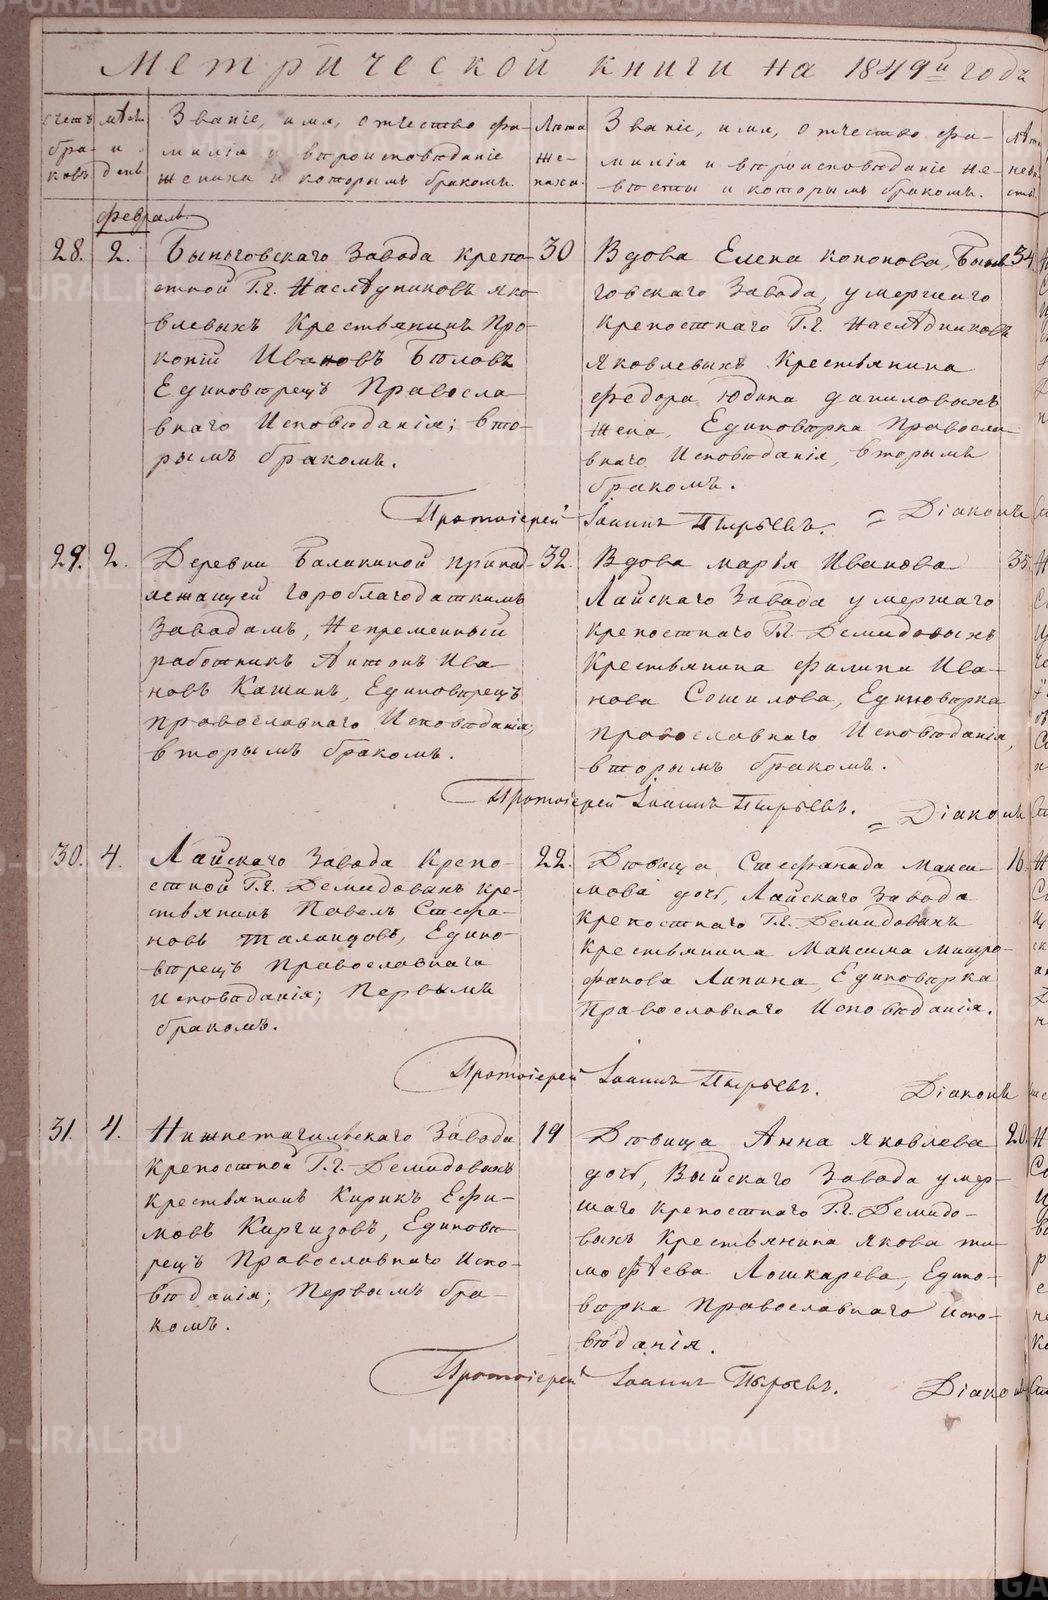 Метрической книги на 1849й годъ
счетъ браковъ
мѣсяц. и день
Званіе, имя, отчество фа-
милія и вѣроисповѣданіе
жениха и которымъ бракомъ.
Лѣта
же-
ниха.
Званіе, имя, отчество фа-
милія и вѣроисповѣданіе не-
вѣсты и которымъ бракомъ.
Лѣта
невѣ
сты.
февраль.
28. 2.
Быньговскаго Завода крепо-
стной Г.г. Наслѣдниковъ Яко-
влевыхъ Крестьянинъ Про-
копій Ивановъ Бѣловъ
Единовѣрецъ Правосла-
внаго Исповѣданія; вто-
рымъ бракомъ.
30
Вдова Елена Кононова, Бынь
говскаго Завода, умершаго
крепостнаго Г.г. Наслѣдниковъ
Яковлевыхъ Крестьянина
Федора Юдина Даниловыхъ
жена, Единовѣрка Правосла-
внаго Исповѣданія, вторымъ
бракомъ.
34
Протоіерей Іоаннъ Пырьевъ. = Діаконъ
29. 2.
Деревни Балакиной принад-
лежащей Гороблагодатскимъ
Заводамъ, Непременный
работникъ Антонъ Ива-
новъ Кашинъ, Единовѣрецъ
православнаго Исповѣданія;
вторымъ бракомъ.
32.
Вдова Марья Иванова
Лайскаго Завода умершаго
крепостнаго Г.г. Демидовыхъ
Крестьянина Филипа Ива-
нова Сошилова, Единовѣрка
православнаго Исповѣданія,
вторымъ бракомъ.
35.
Протоіерей Іоаннъ Пырьевъ. = Діаконъ
30. 4.
Лайскаго Завода Крепо-
стной Г.г. Демидовыхъ кре-
стьянинъ Павелъ Стефа-
новъ Таланцовъ, Едино-
вѣрецъ Православнаго
Исповѣданія; Первымъ
бракомъ.
22.
Дѣвица Стефанида Макси-
мова дочь, Лайскаго Завода
крепостнаго Г.г. Демидовыхъ
Крестьянина Максима Митро-
фанова Липина, Единовѣрка
Православнаго Исповѣданія.
16.
Протоіерей Іоаннъ Пырьевъ. Діаконъ
31. 4.
Нижнетагильскаго Завода
крепостной Г.г. Демидовыхъ
крестьянинъ Кирикъ Ефи-
мовъ Киргизовъ, Единовѣ-
рецъ Православнаго Испо-
вѣданія; Первымъ бра-
комъ.
19
Дѣвица Анна Яковлева
дочь, Выйскаго Завода умер-
шаго крепостнаго Г.г. Демидо-
выхъ Крестьянина Якова Ти-
мофѣева Лошкарева, Едино-
вѣрка Православнаго Испо-
вѣданія.
20.
Протоіерей Іоаннъ Пырьевъ. Діаконъ
METRIKI.GASO-URAL.RU